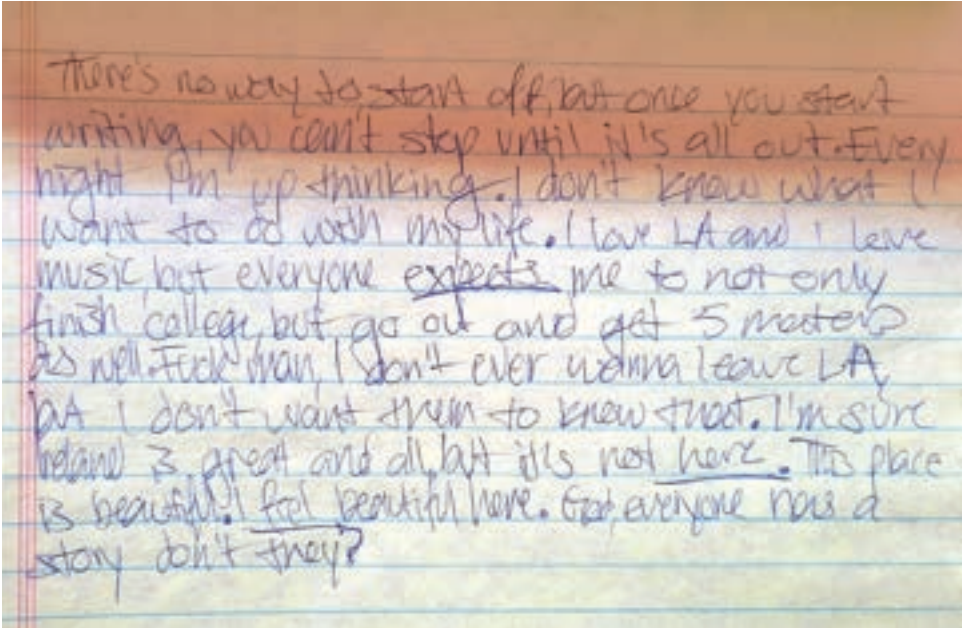 There's no way to start off, but once you start
writing, you can't stop until it's all out. Every
night I'm up thinking. I don't know what I
want to do with my life. I love LA and I love
music, but everyone expects me to not only
finish college, but go out and get 5 masters
as well. Fuck man, I don't ever wanna leave LA,
but I don't want them to know that. I'm sure
Ireland is great and all, but it's not here. This place
is beautiful. I feel beautiful here. everyone has a
story don't they?